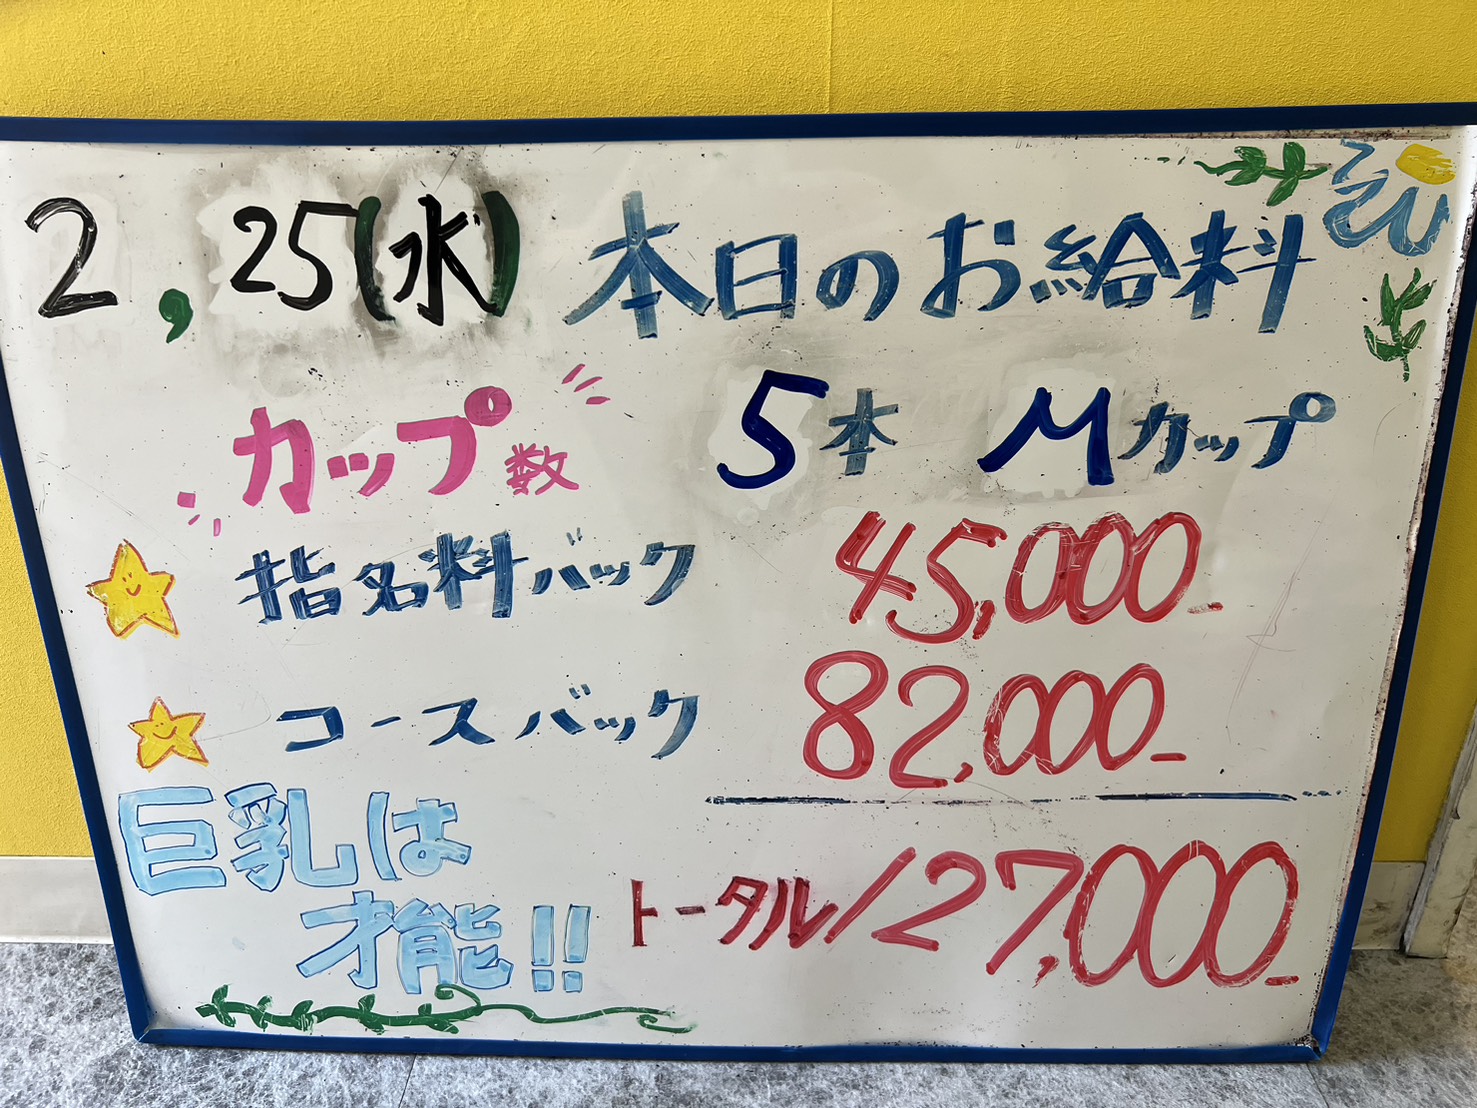 2,25(水) 本日のお給料
カップ数 5本 Mカップ
指名料バック 45,000-
コースバック 82,000-
巨乳は
才能!!
トータル/127,000-